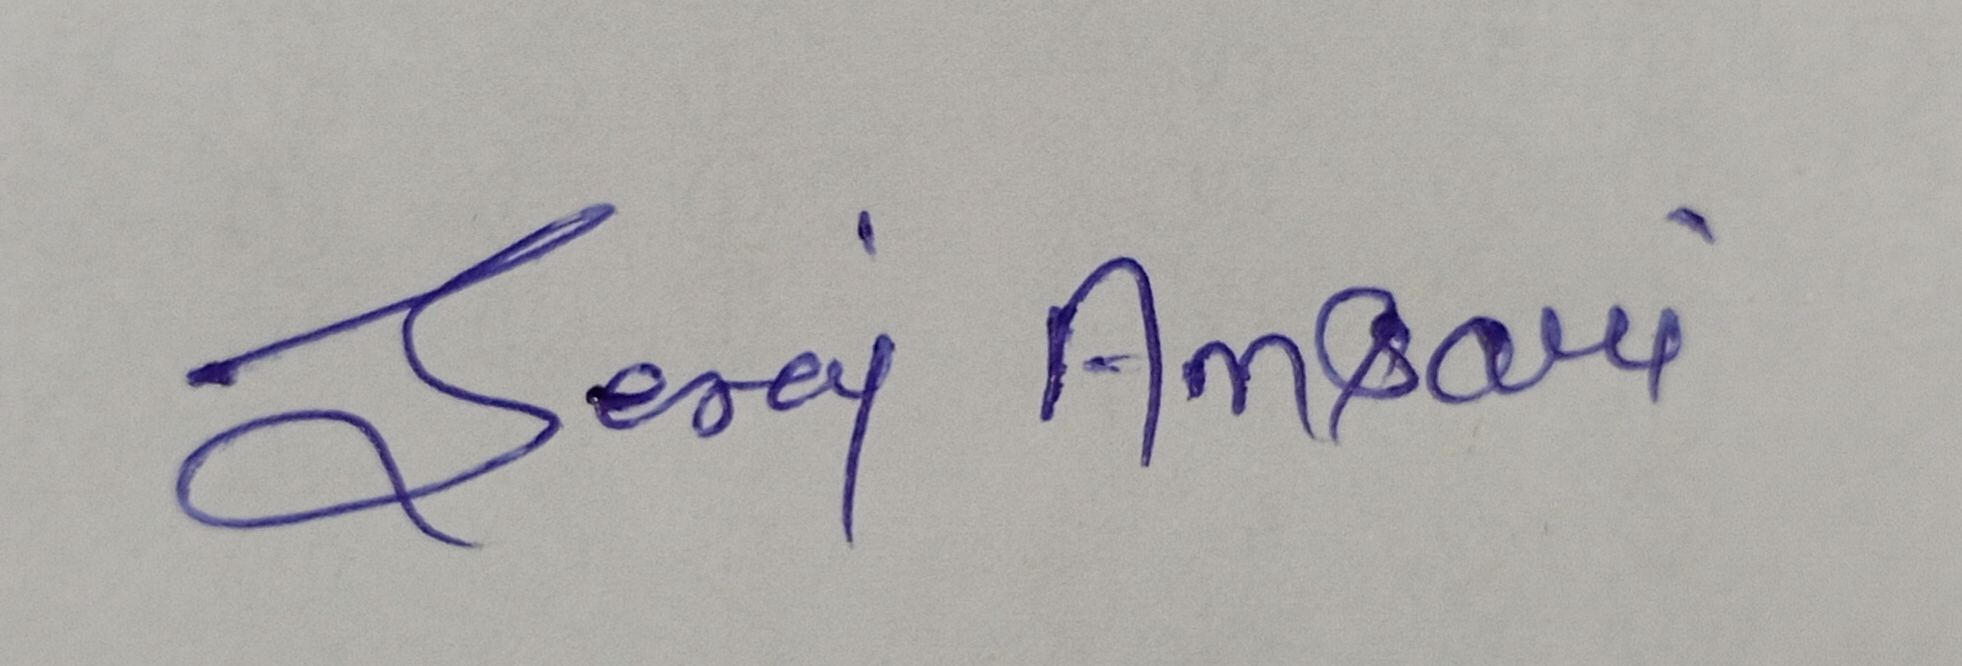 Seraj Ansari